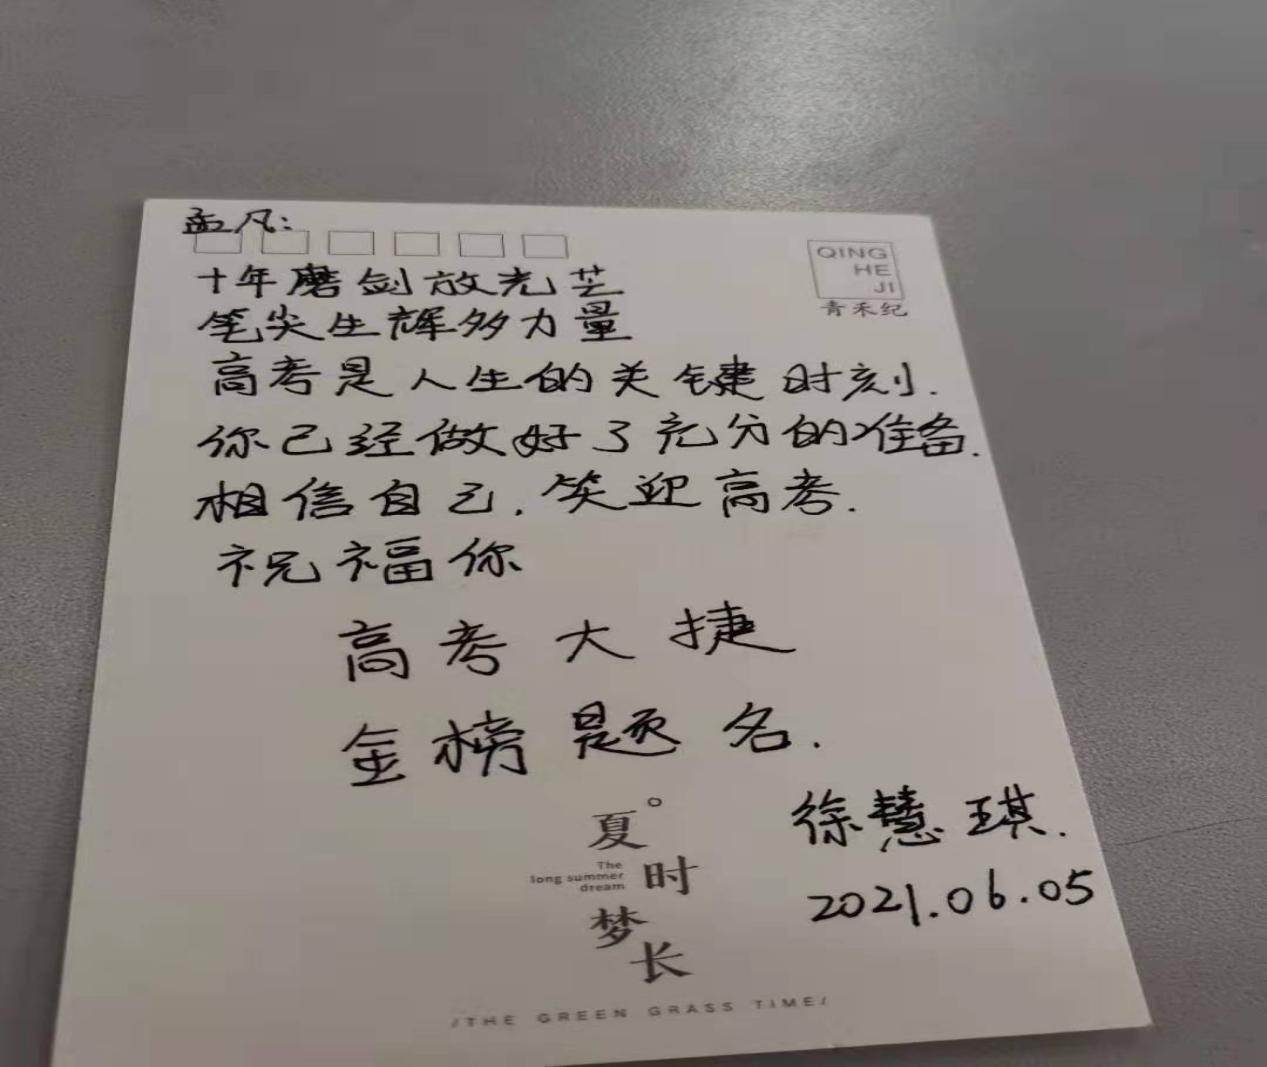 孟凡:
QING
HE
JI
青禾纪
十年磨剑放光芒
笔尖生辉多力量
高考是人生的关键时刻.
你已经做好了充分的准备.
相信自己.笑迎高考.
祝福你
高考大捷
金榜题名.
徐慧琪.
2021.06.05
夏
The
long summer
dream
时
梦
长
/THE GREEN GRASS TIME/